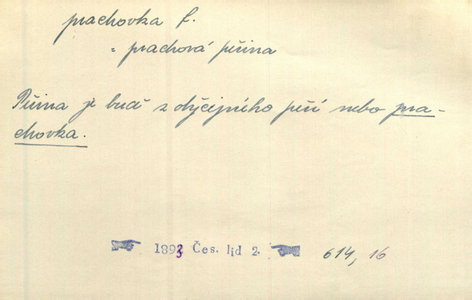 prachovka f.
„ prachová peřina
Peřina je buď z obyčejného peří nebo pra-
chovka.
☚ 1893 Čes. lid 2. ☛ 614, 16